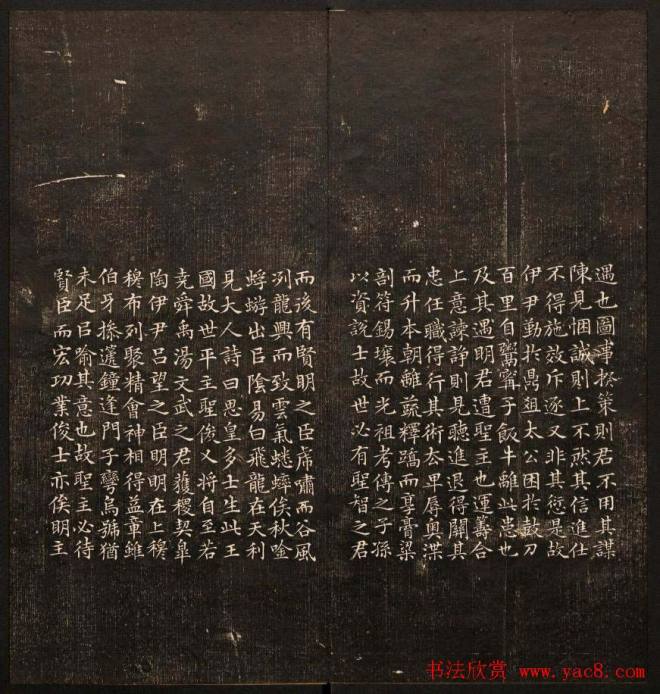 遇也圖事揆策則君不用其謀
陳見悃誠則上不然其信進仕
不得施效斥逐又非其愆是故
伊尹勤於鼎俎太公困於鼓刀
百里自鬻甯子飯牛離此患也
及其遇明君遭聖主也運籌合
上意諫諍則見聽進退得關其
忠任職得行其術去卑辱奧渫
而升本朝離蔬釋蹻而享膏粱
剖符錫壤而光祖考傳之子孫
以資說士故世必有聖智之君
而後有賢明之臣虎嘯而谷風
冽龍興而致雲氣蟋蟀俟秋唫
蜉蝣出以陰易曰飛龍在天利
見大人詩曰思皇多士生此王
國故世平主聖俊乂將自至若
堯舜禹湯文武之君獲稷契皋
陶伊尹呂望之臣明明在上穆
穆布列聚精會神相得益章雖
伯牙操遞鐘逢門子彎烏號猶
未足以喻其意也故聖主必待
賢臣而宏功業俊士亦俟明主
书法欣赏 www.yac8.com